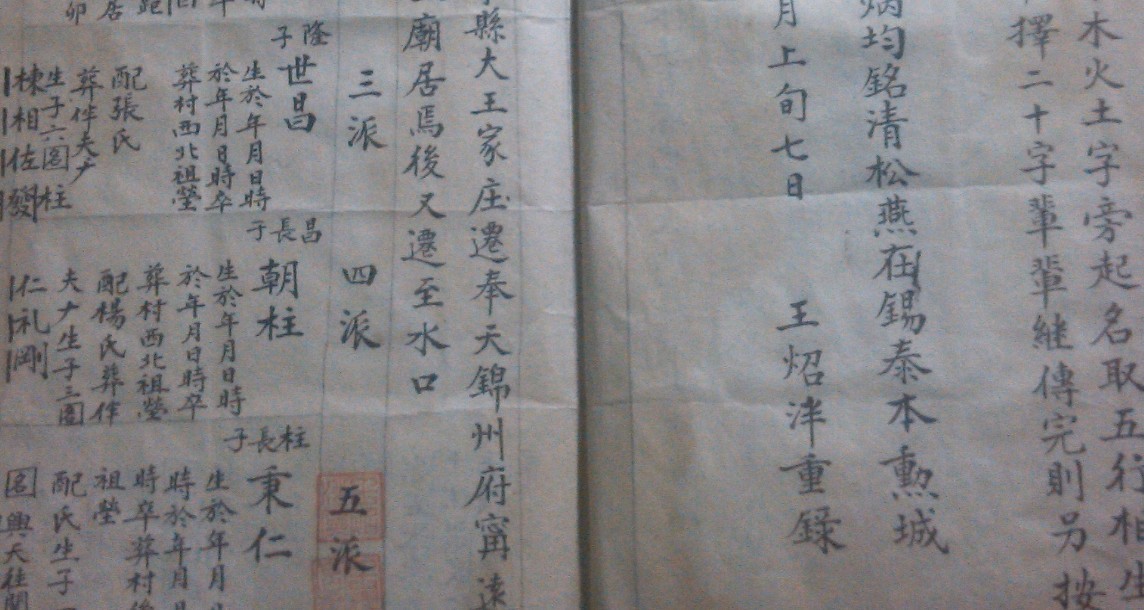 木火土字旁起名取五行相生
擇二十字輩輩継傳完則另按
炳均銘清松燕在錫泰本勲城
月上旬七日
王炤洋重録
縣大王家庄遷奉天錦州府甯遠
廟居焉後又遷至水口
三派
四派
五派
隆
子
世昌
生於年月日時
於年月日時卒
葬村西北祖瑩
配張氏
葬伴夫户
生子六圖柱
棟相佐
昌長子
朝柱
生於年月日時
於年月日時卒
葬村西北祖瑩
配楊氏葬伴
夫户生子三圖
仁礼剛
柱長子
秉仁
生於年月日
時於年月日
時卒葬村後
祖瑩
配氏生子
名興天柱